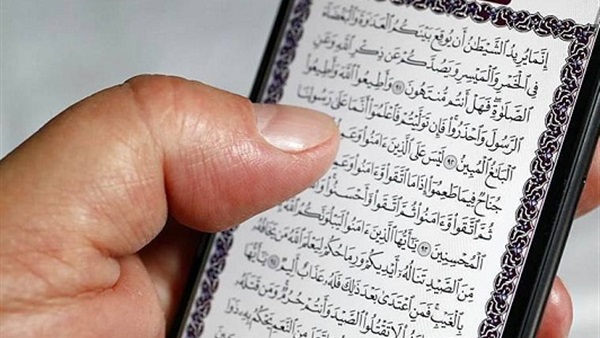 إِنَّمَا يُرِيدُ ٱلشَّيْطَٰنُ أَن يُوقِعَ بَيْنَكُمُ ٱلْعَدَٰوَةَ وَٱلْبَغْضَآءَ
فِي ٱلْخَمْرِ وَٱلْمَيْسِرِ وَيَصُدَّكُمْ عَن ذِكْرِ ٱللَّهِ وَعَنِ
ٱلصَّلَوٰةِ فَهَلْ أَنتُم مُّنتَهُونَ ٩١ وَأَطِيعُوا۟ ٱللَّهَ وَأَطِيعُوا۟
ٱلرَّسُولَ وَٱحْذَرُوا۟ فَإِن تَوَلَّيْتُمْ فَٱعْلَمُوٓا۟ أَنَّمَا عَلَىٰ رَسُولِنَا
ٱلْبَلَٰغُ ٱلْمُبِينُ ٩٢ لَيْسَ عَلَى ٱلَّذِينَ ءَامَنُوا۟
جُنَاحٌ فِيمَا طَعِمُوٓا۟ إِذَا مَا ٱتَّقَوا۟ وَّءَامَنُوا۟
ثُمَّ ٱتَّقَوا۟ وَّءَامَنُوا۟ ثُمَّ ٱتَّقَوا۟ وَّأَحْسَنُوا۟
ٱلْمُحْسِنِينَ ٩٣ يَٰٓأَيُّهَا ٱلَّذِينَ ءَامَنُوا۟ لَيَبْلُوَنَّكُمُ ٱللَّهُ
مِّنَ ٱلصَّيْدِ تَنَالُهُۥٓ أَيْدِيكُمْ وَرِمَاحُكُمْ لِيَعْلَمَ ٱللَّهُ مَن يَخَافُهُۥ
بِٱلْغَيْبِ فَمَنِ ٱعْتَدَىٰ بَعْدَ ذَٰلِكَ فَلَهُۥ عَذَابٌ أَلِيمٌ ٩٤ يَٰٓأَيُّهَا
لَا تَقْتُلُوا۟ ٱلصَّيْدَ وَأَنتُمْ حُرُمٌ وَمَن قَتَلَهُۥ
مِنَ ٱلنَّعَمِ يَحْكُمُ بِهِۦ ذَوَا